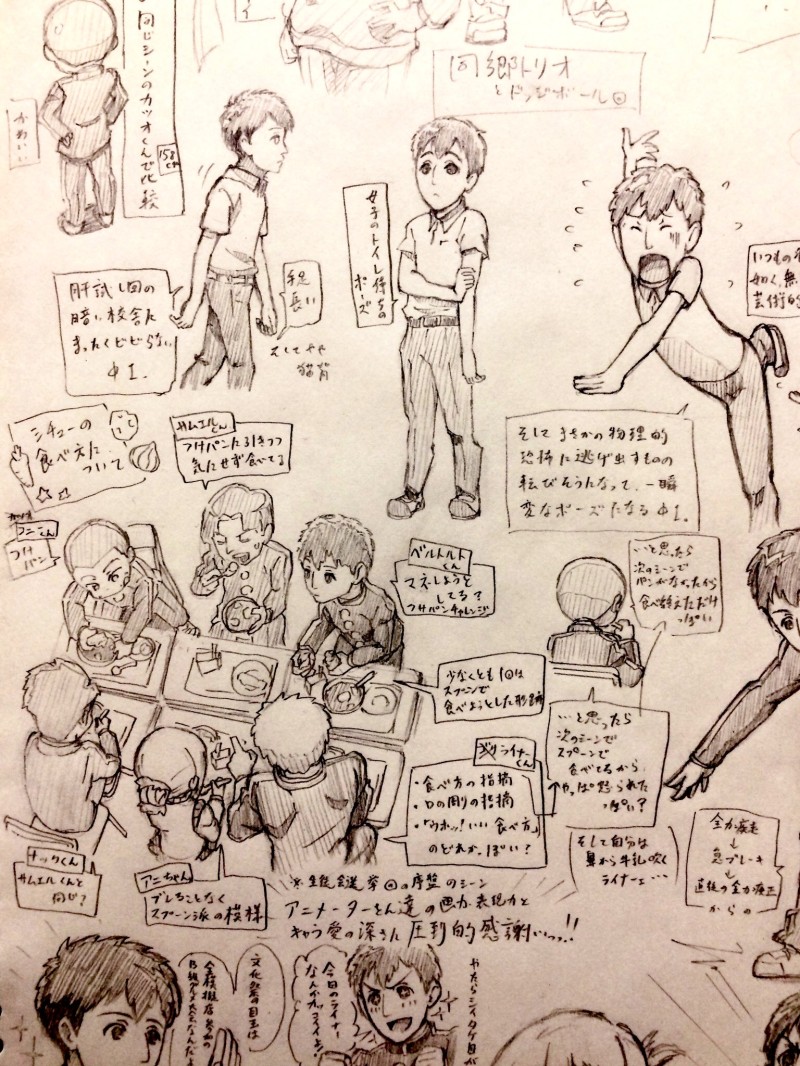 同じシーンのカツオくんで比較
158cm
かわいい
回 郷トリオ
とドッジボール回
肝試し回の
暗い校舎に
まったくビビらない
Φ1.
手足
長い
そしてやや
猫背
女子のトイレ待ちの
ポーズ
いつもの
如く、無
芸術的
そしてまさかの物理的
恐怖に逃げ出すものの
転びそうになって、一瞬
変なポーズになるΦ1.
シチューの
食べ方に
ついて
サムエルくん
つけパンたろきつつ
気にせず食べてる
コニーくん
つけパン
ベルトルト
くん
マネしようと
してる?
つけパンチャレンジ
少なくとも1回は
スプーンで
食べようとした形跡
…と思ったら
次のシーンで
パンがなかったから
食べ終えただけ
っぽい
…と思ったら
次のシーンで
スプーンで
食べてるから
やっぱ怒られた
っぽい?
ライナー
くん
・食べ方の指摘
・口の周りの指摘
・「ウホッ!いい食べ方」
のどれかっぽい?
そして自分は
鼻から牛乳吹く
ライナー…
全力疾走
↓
急ブレーキ
↓
直後の全力疾走
からの
ナックくん
サムエルくんと
同じ?
アニちゃん
ブレることなく
スプーン派の模様
※生徒会選挙回の序盤のシーン
アニメーターさん達の画力・表現力と
キャラ愛の深さに圧倒的感謝いっっ!!
文化祭の目玉は
全模擬店参加の
今日のライナー
なんかカッコイイよ!
やたらシイタケ目が